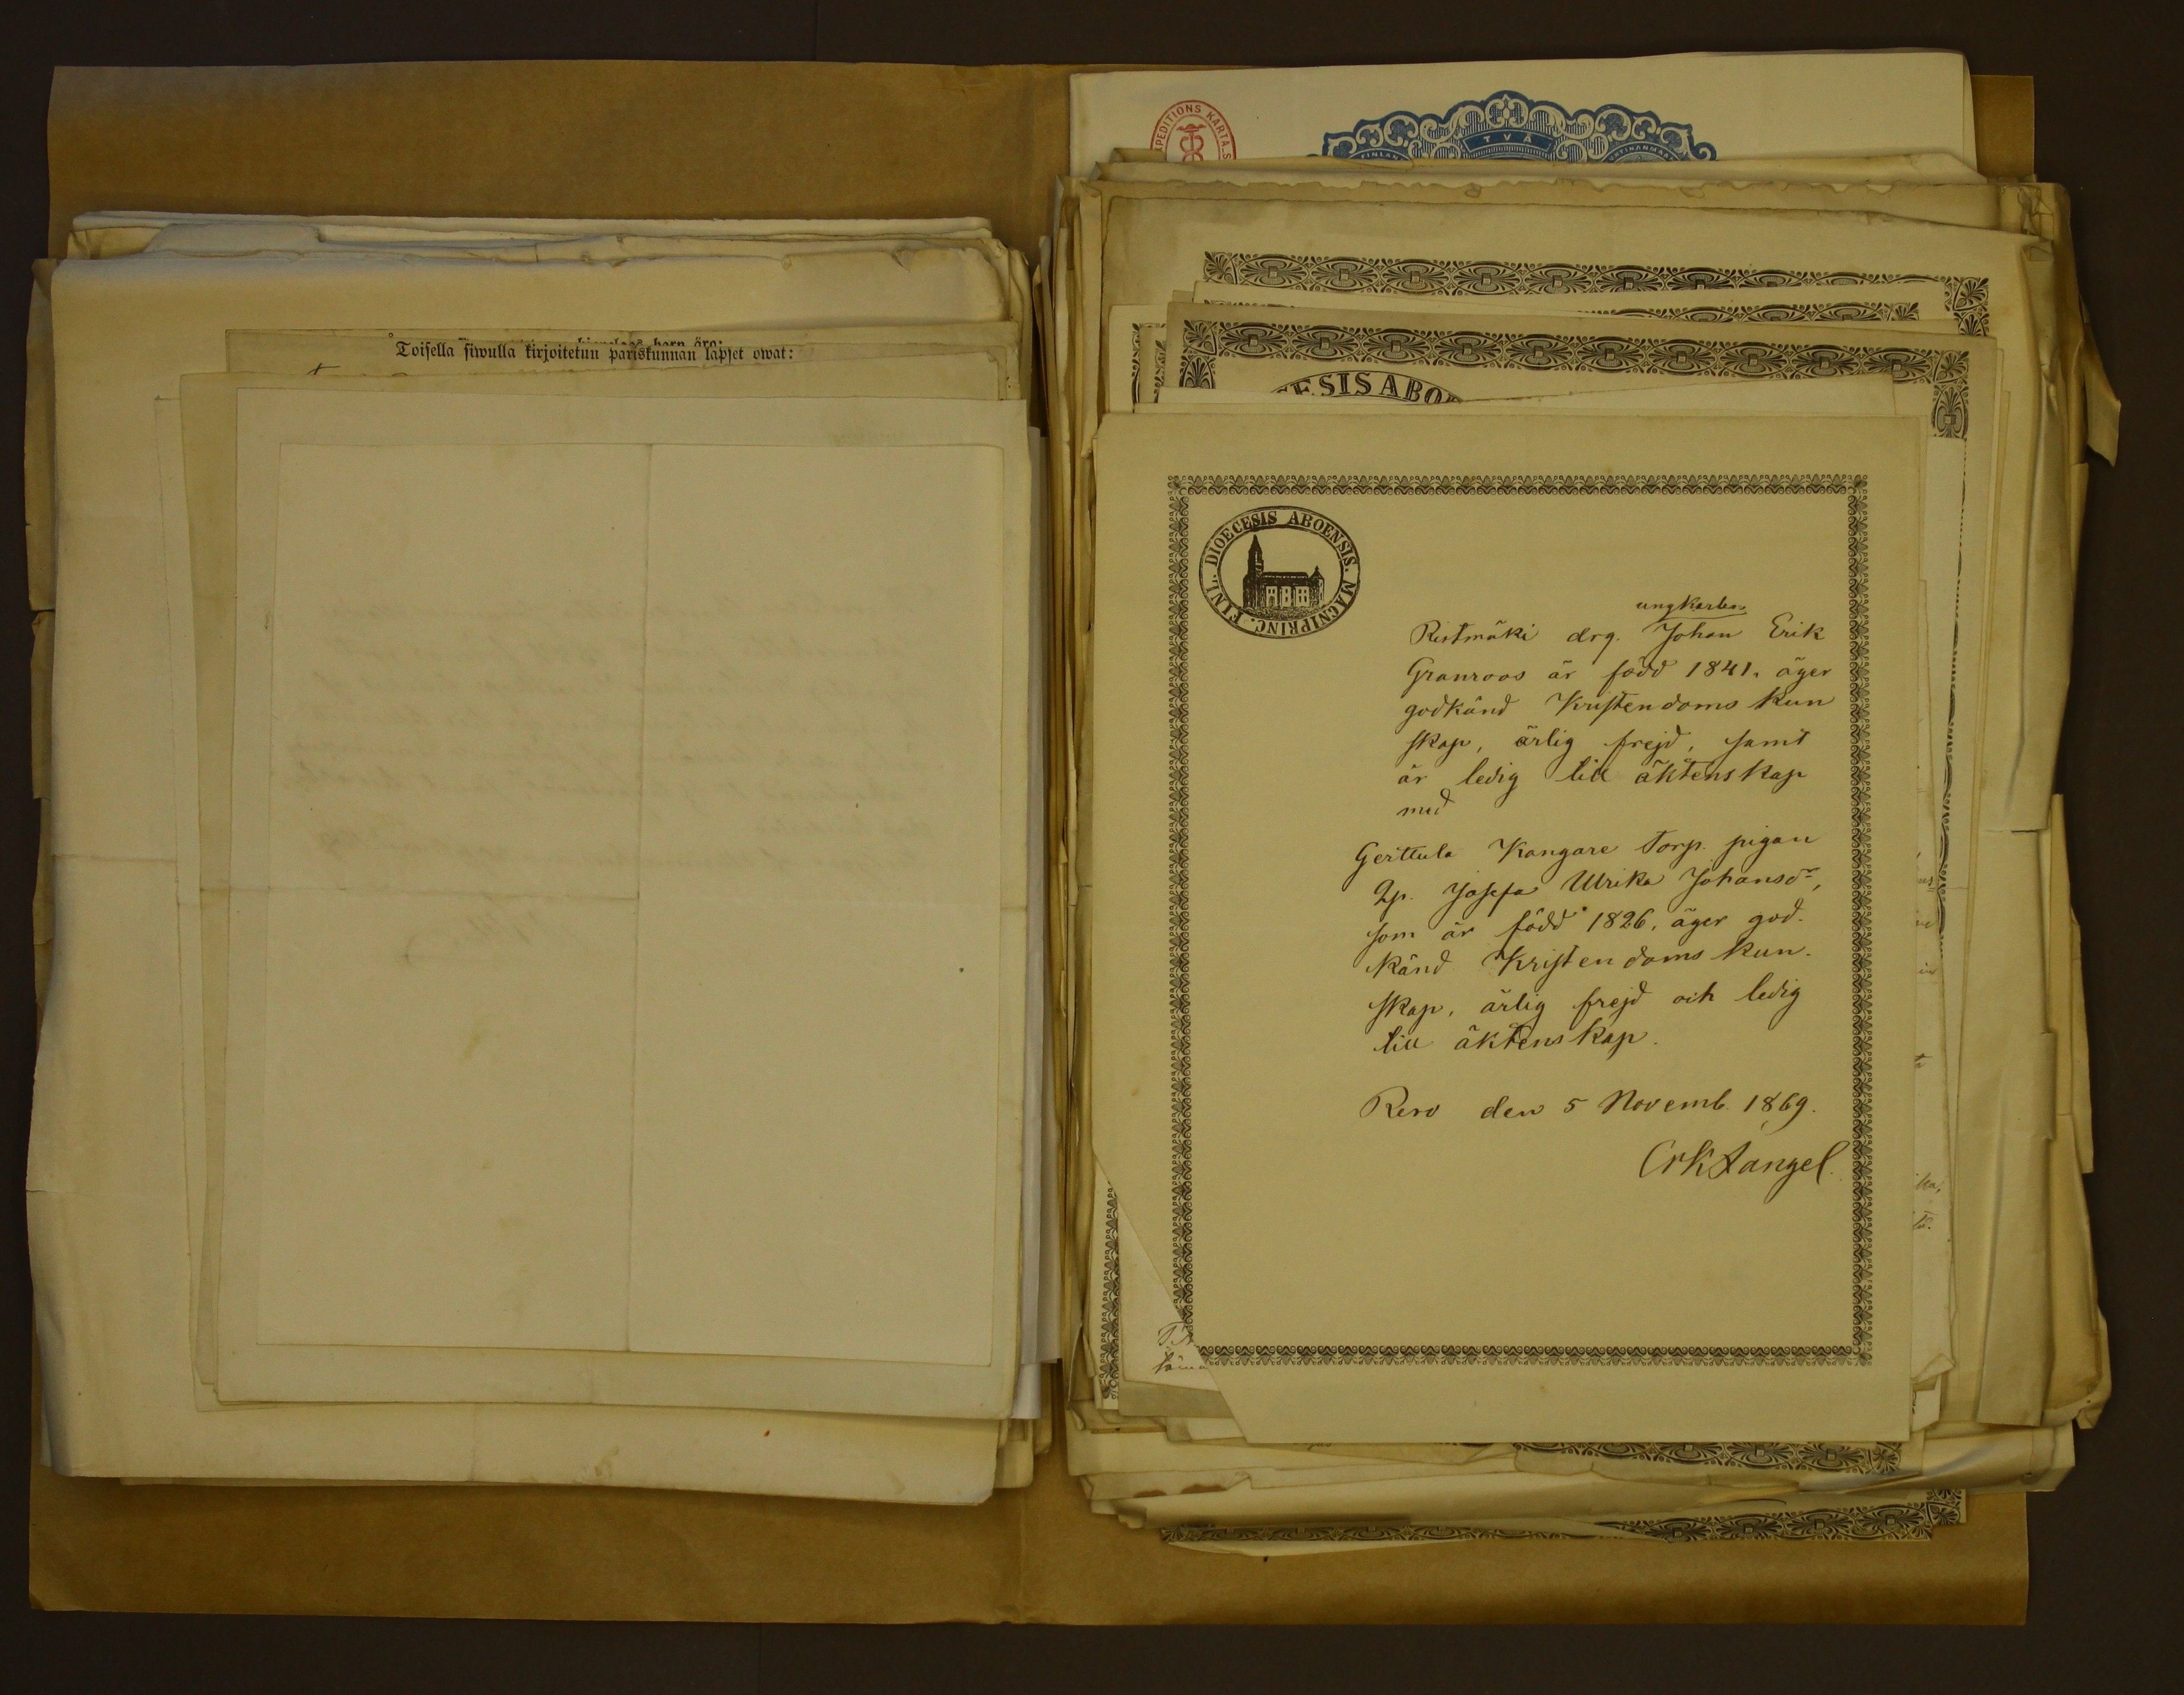 EXPEDITIONS KARTA. S
TVÅ
FINLAN
Toisella siwulla kirjoitetun pariskunnan lapset owat:
ESIS ABO
DIOECESIS ABOENSIS. MAGNIPRINC. FINL.
ungkarlen
Ristmäki drg. Johan Erik
Granroos är född 1841, äger
godkänd Kristendoms kun
skap, ärlig frejd, samt
är ledig till äktenskap
med
Gerttula Kangare Torp. pigan
Qp. Josefa Ulrika Johansdr,
som är född 1826, äger god-
känd Kristendoms kun-
skap, ärlig frejd och ledig
till äktenskap.
Revo den 5 Novemb. 1869.